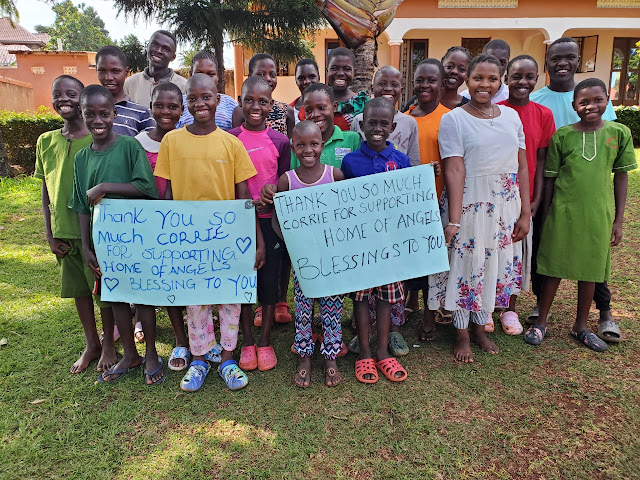 Thank You so
Much CORRIE
FOR SUPPORTING
HOME OF ANGELS
BLESSING TO YOU
THANK YOU SO MUCH
CORRIE FOR SUPPORTING
HOME OF ANGELS
BLESSINGS TO YOU